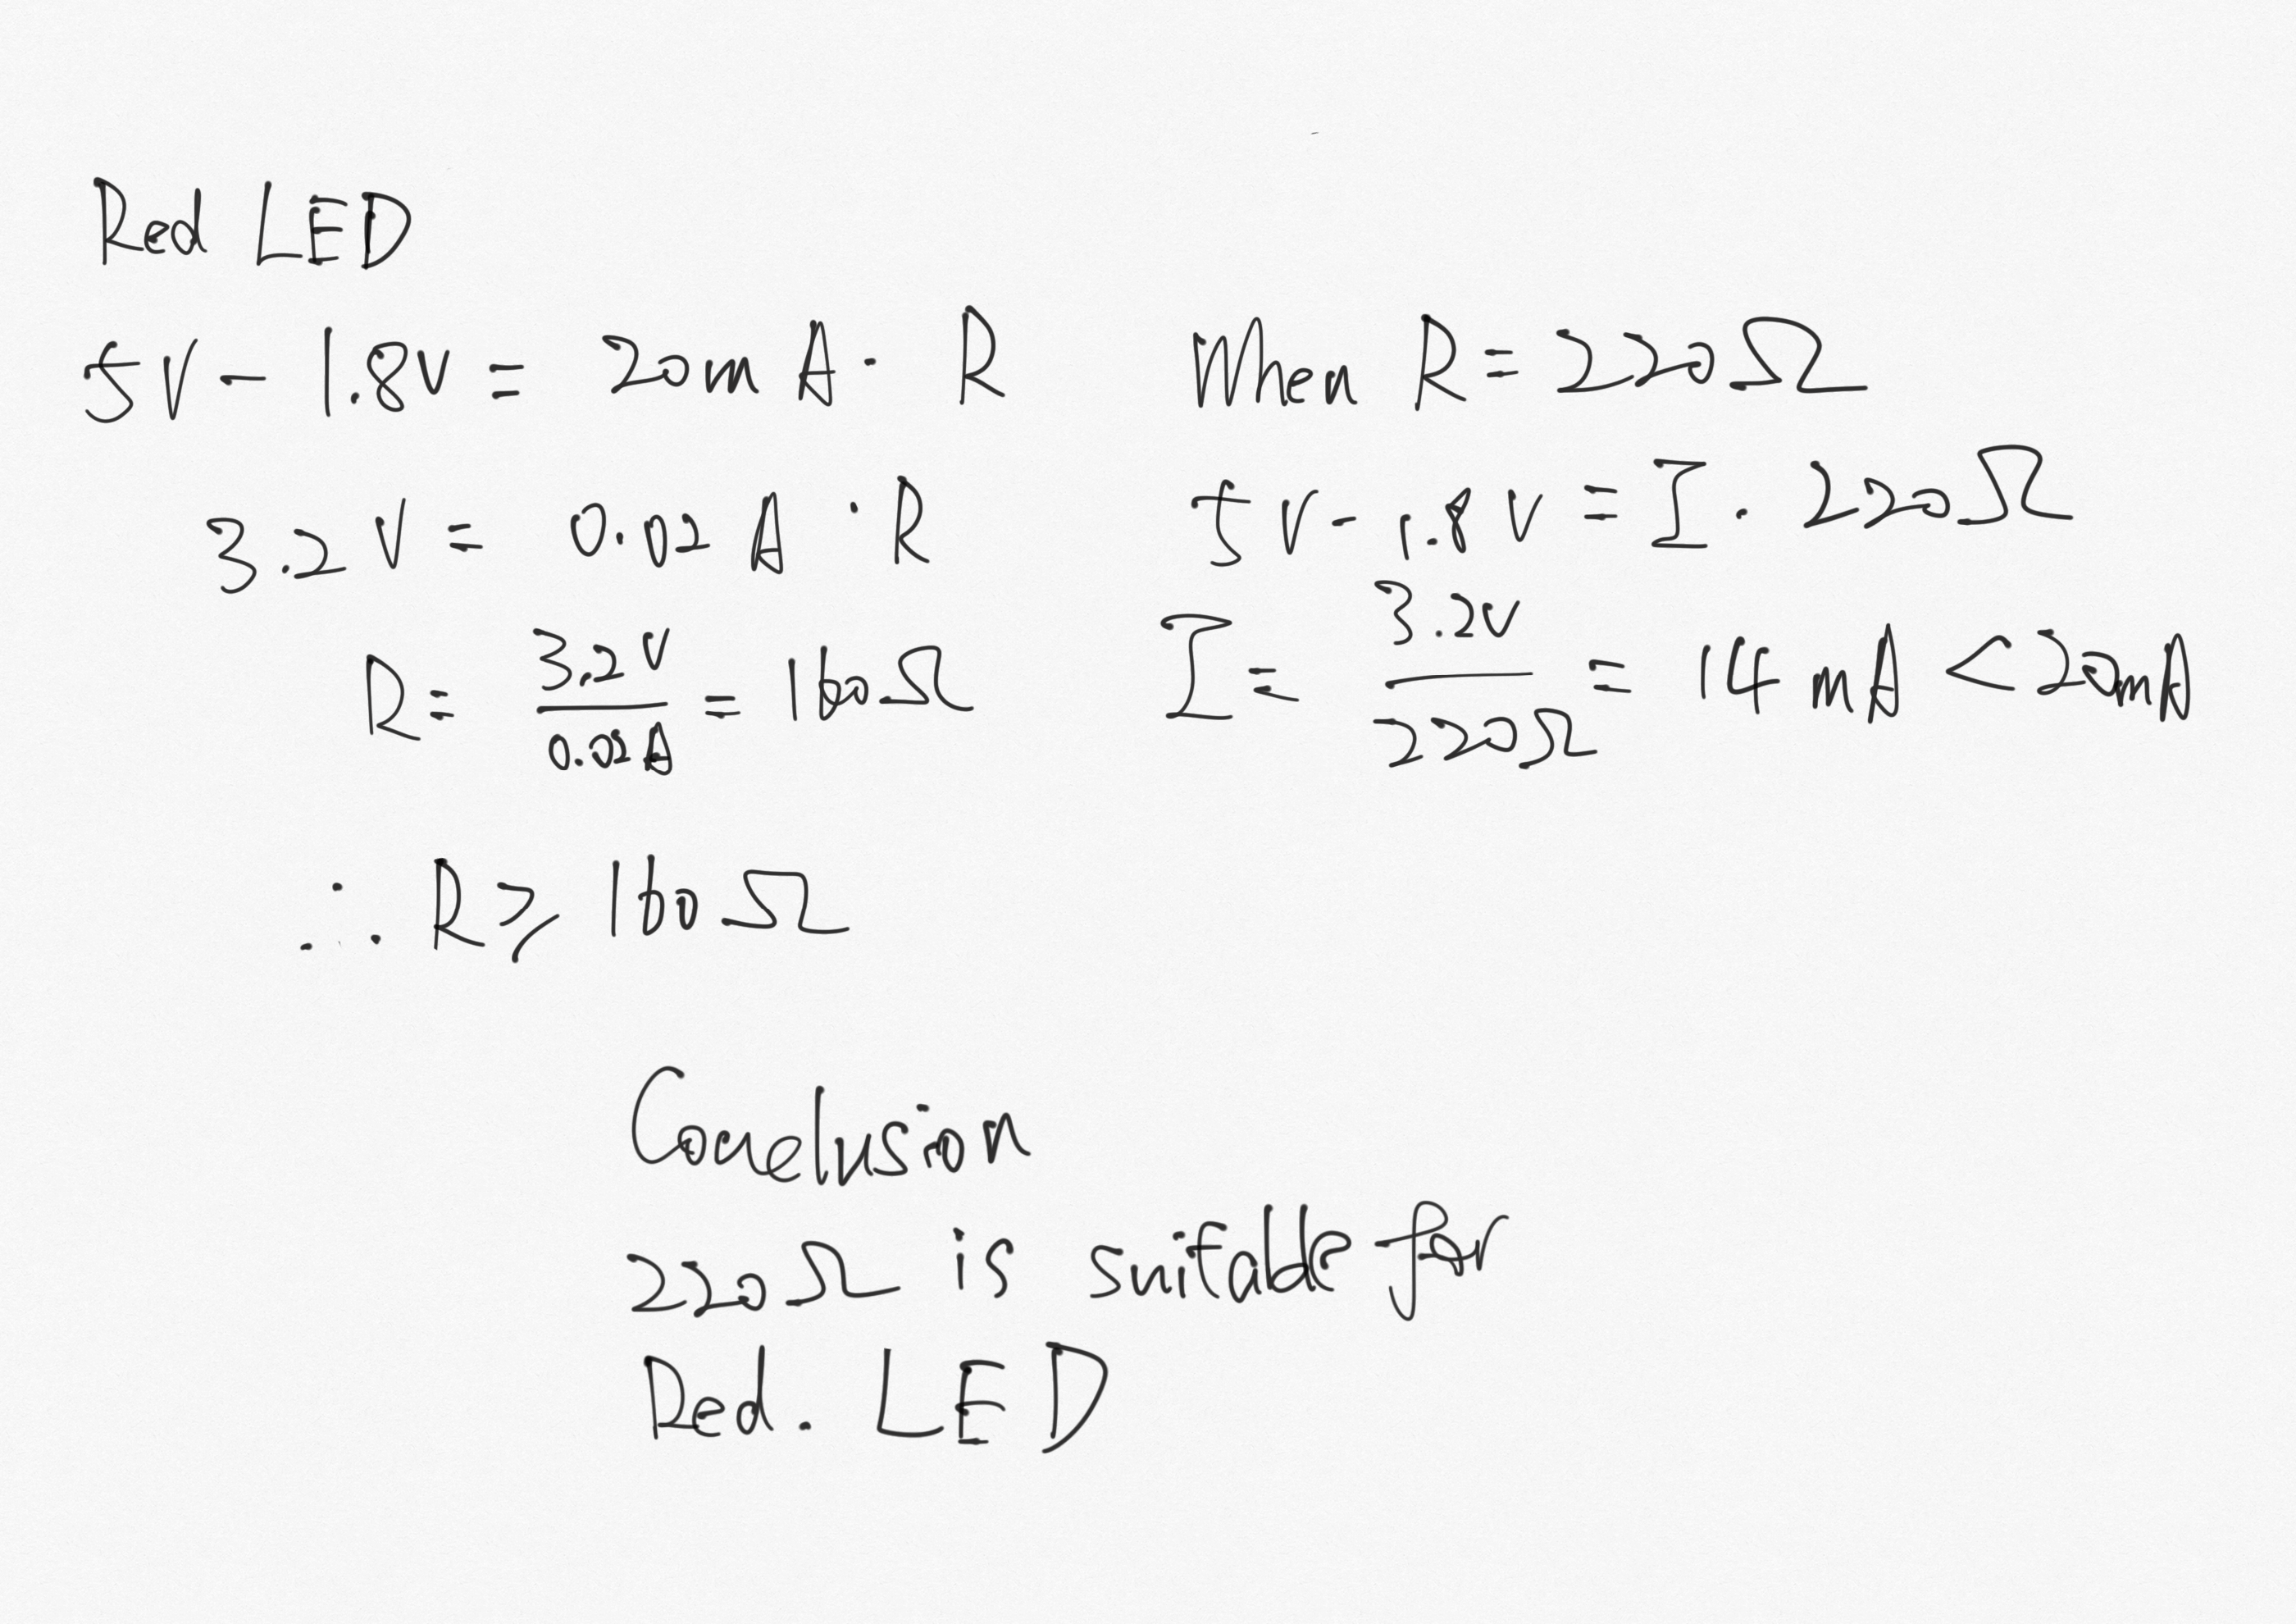 Red LED
5V - 1.8V = 20mA · R
3.2V = 0.02A · R
R = 3.2V / 0.02A = 160Ω
∴ R ⩾ 160Ω
When R = 220Ω
5V - 1.8V = I · 220Ω
I = 3.2V / 220Ω = 14mA < 20mA
Conclusion
220Ω is suitable for
Red. LED